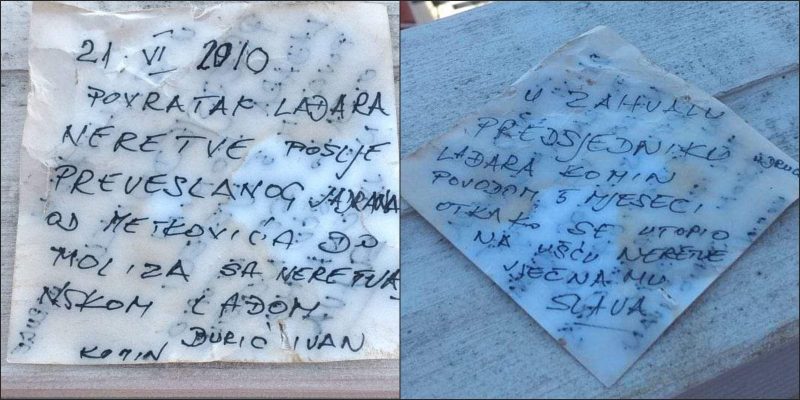 21. VI 2010
POVRATAK LAĐARA
NERETVE POSLJE
PREVESLANOG JADRANA
OD METKOVIĆA DO
MOLIZA SA NERETVA
NSKOM LAĐOM
KOMIN ĐURIĆ IVAN
U ZAHVALU
PREDSJEDNIKU
LAĐARA KOMIN
POVODOM 5 MJESECI
OTKAKO SE UTOPIO
NA UŠĆU NERETVE
VJEČNA MU
SLAVA